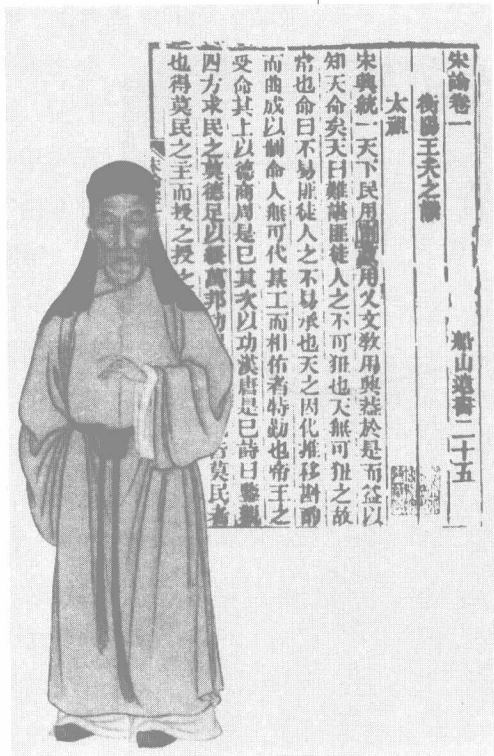 宋論卷一 船山遺書二十五
衡陽王夫之譔
太祖
宋興統一天下民用政用乂文教用興蓋於是而益以
知天命矣天曰難諶匪徒人之不可狃也天無可狃之故
常也命曰不易匪徒人之不易承也天之因化推移斟酌
而曲成以制命人無可代其工而相佑者特勤也帝王之
受命其上以德商周是已其次以功漢唐是已詩曰鑒觀
四方求民之莫德足以綏萬邦功 皆莫民者
也得莫民之主而授之授之